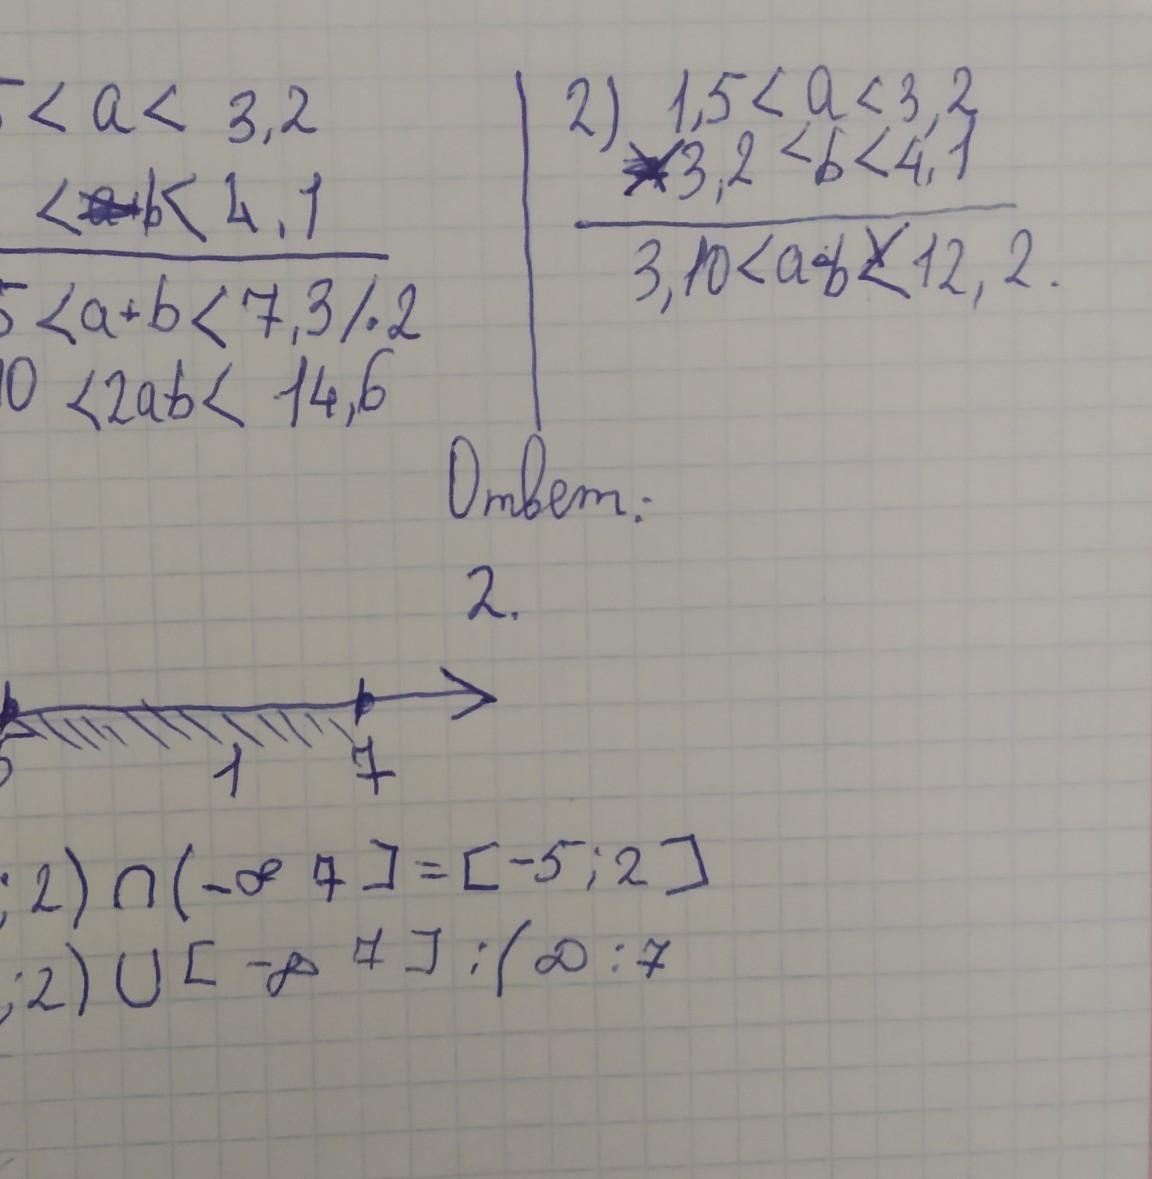 5 < a < 3,2
< b < 4,1
5 < a+b < 7,3 /.2
10 < 2ab < 14,6
2) 1,5 < a < 3,2
3,2 < b < 4,1
3,10 < a b < 12,2.
Ответ:
2.
1 7
;2) ∩ (-∞ 7] = [-5;2]
;2) ∪ [-∞ 7] :(∞:7